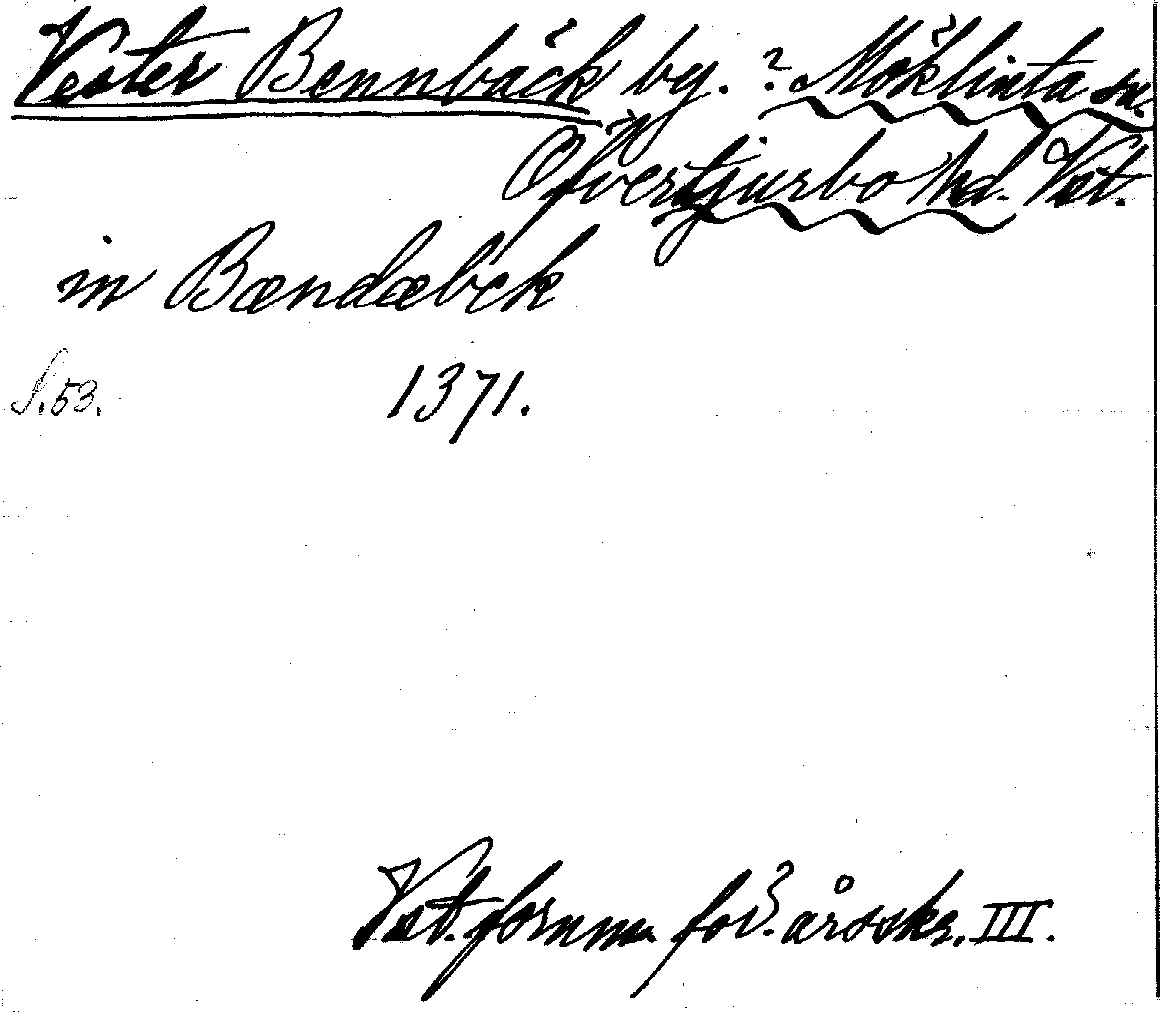 Vester Bennbäck by. ? Möklinta sn.
Öfvertjurbo hd. Vst.
in Bændæbek
S. 53. 1371.
Vst. fornm. för. årsskr. III.